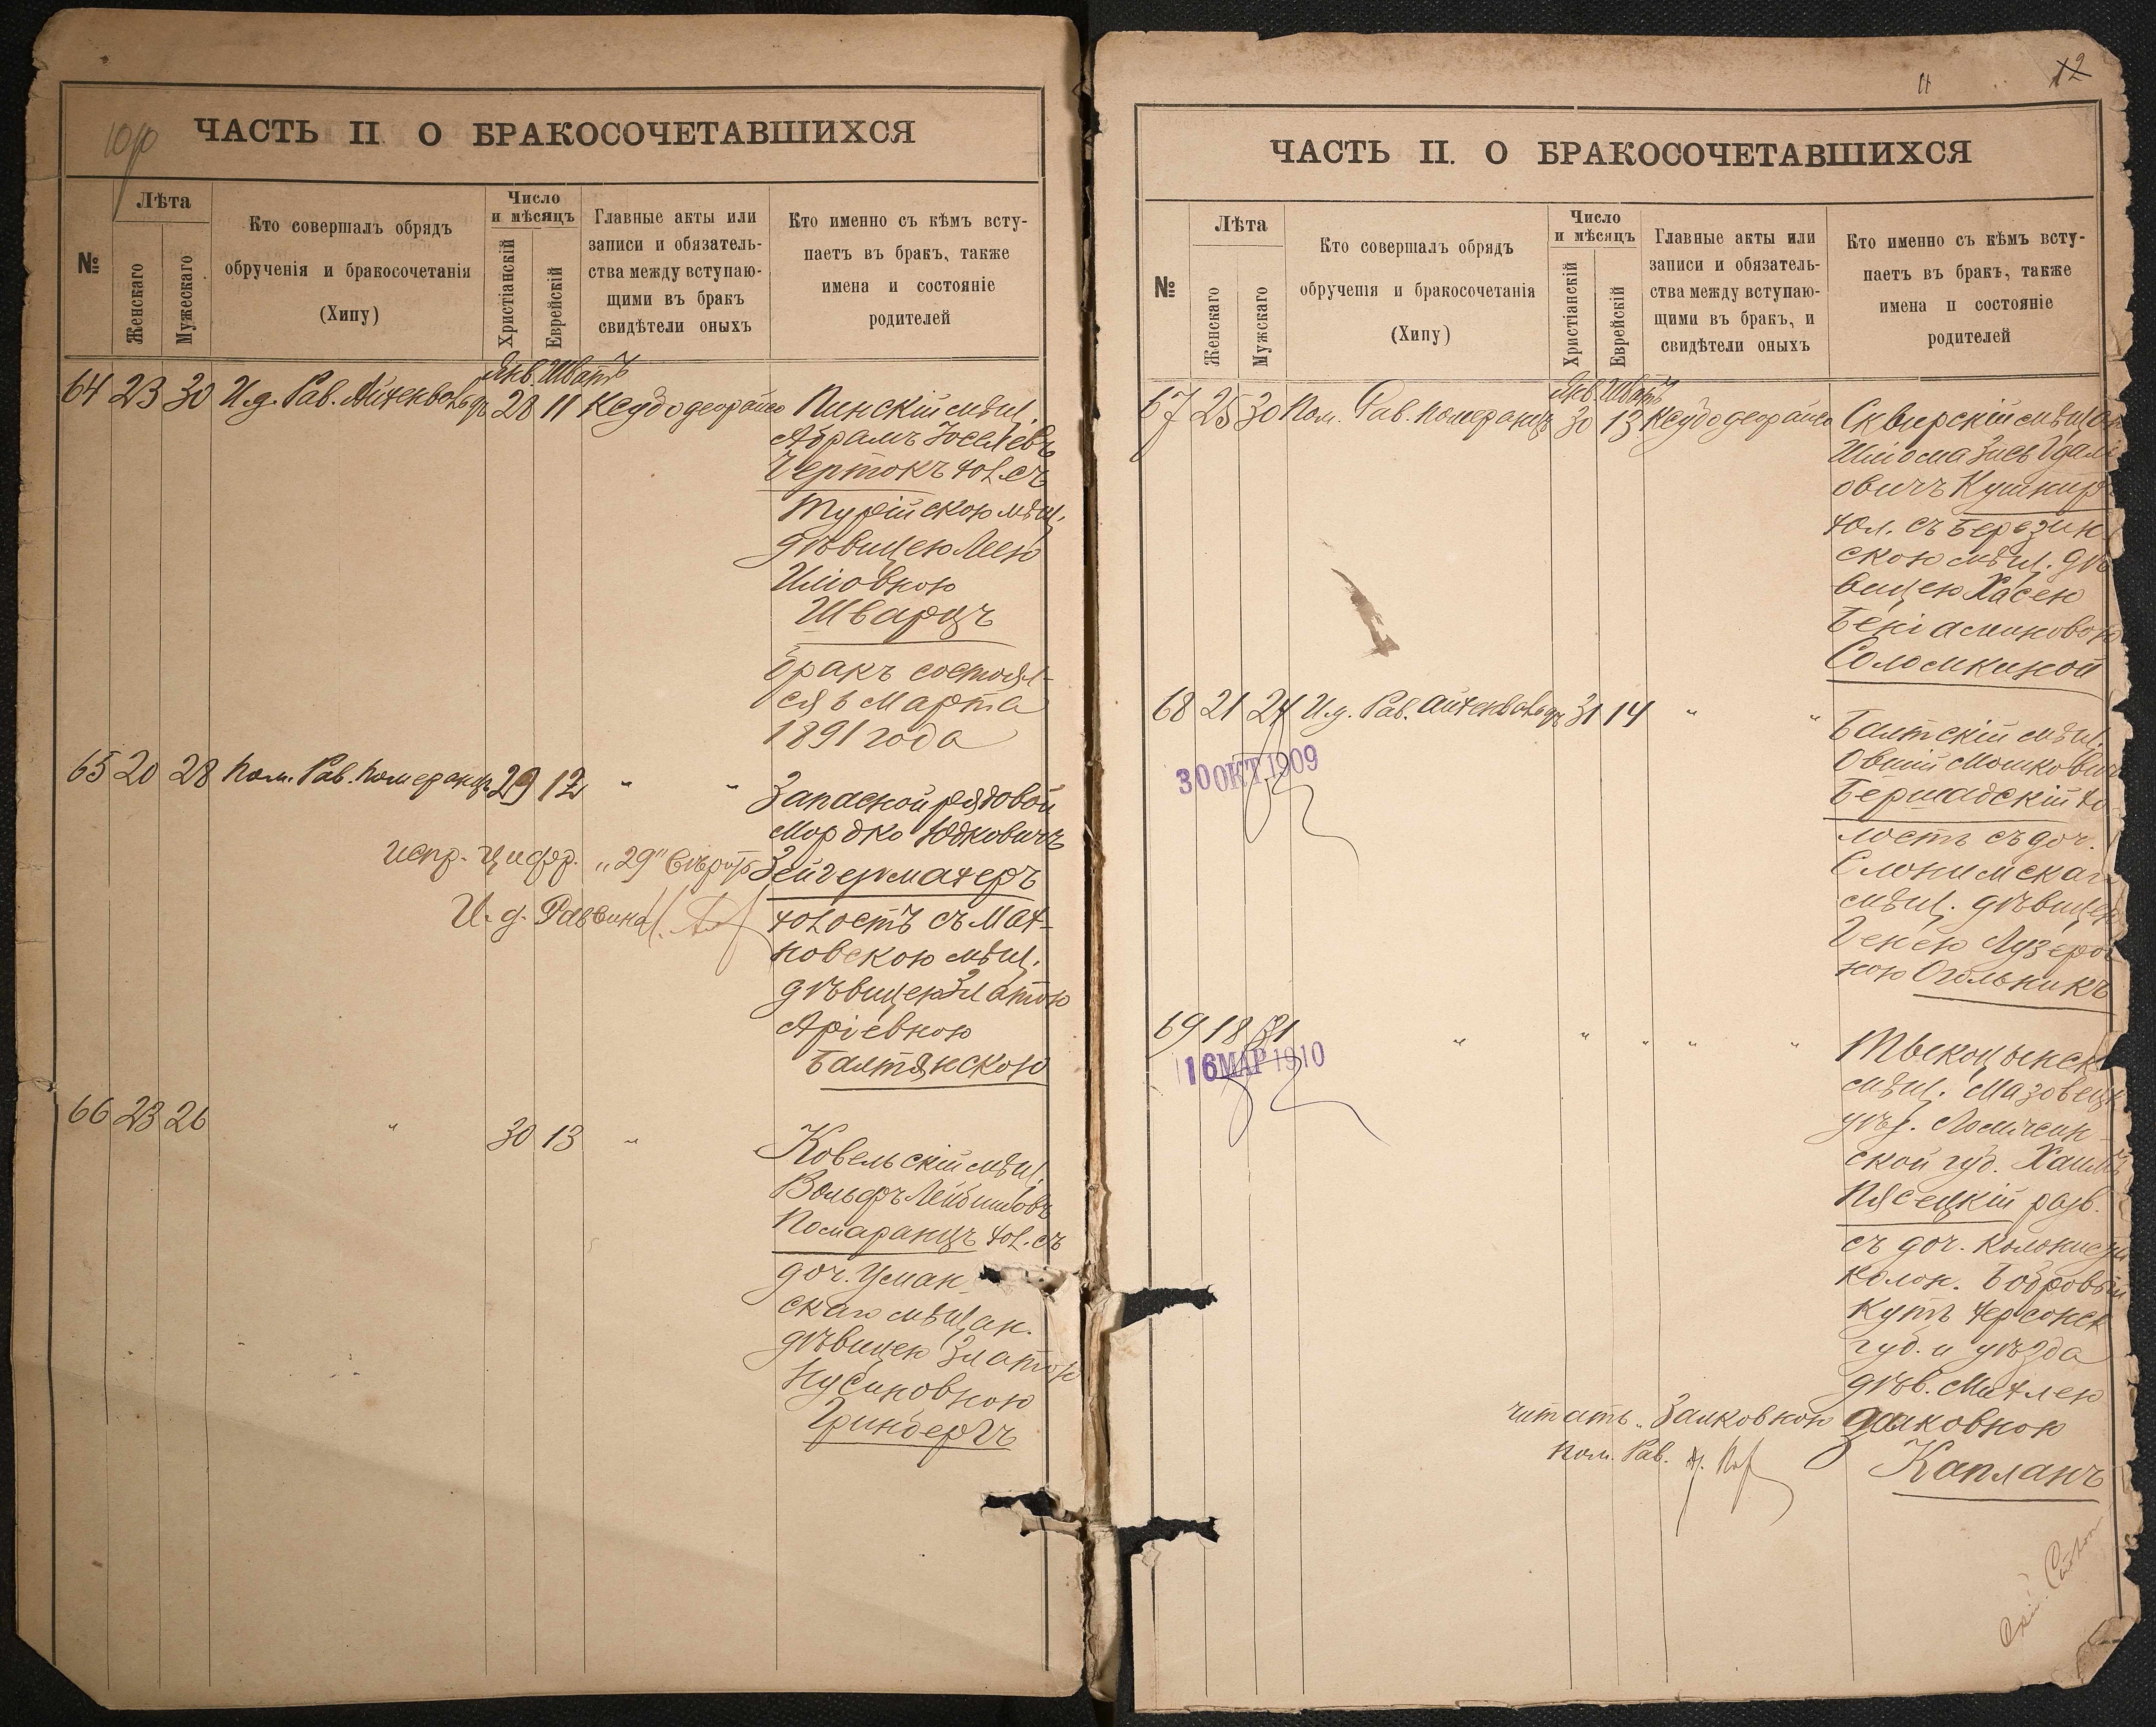 ЧАСТЬ II О БРАКОСОЧЕТАВШИХСЯ
№
Лѣта
Женскаго
Мужескаго
Кто совершалъ обрядъ
обрученія и бракосочетанія
(Хипу)
Число
и мѣсяцъ
Христіанскій
Еврейскій
Главные акты или
записи и обязатель-
ства между вступаю-
щими въ бракъ
свидѣтели оныхъ
Кто именно съ кѣмъ всту-
паетъ въ бракъ, также
имена и состояніе
родителей
Янв. Шватъ
64 23 30 И. д. Рав. Айзенвольдъ... 28 11 Ксубо деорайсо Пинскій мѣщ.
Абрамъ Іоселевъ
Чертокъ хол. съ
Турійскою мѣщ.
дѣвицею Леею
Шварцъ
Бракъ состоял-
ся 6 Марта
1891 года
65 20 28 Пом. Рав. Померанцъ 29 12 " " Запасной рядовой
Мордко Юдковичъ
Зейгермахеръ
холостъ съ Мах-
новскою мѣщ.
дѣвицею Златою
Аріевною
Балтянскою
испр. цифр. „29" вѣрно
И. д. Раввина
66 23 26 " 30 13 " Ковельскій мѣщ.
Вольфъ Лейбишовъ
Помаранцъ хол. съ
доч. Уман-
скаго мѣщан.
дѣвицею Златою
Нусиновною
Гринбергъ
11
12
ЧАСТЬ II. О БРАКОСОЧЕТАВШИХСЯ
№
Лѣта
Женскаго
Мужскаго
Кто совершалъ обрядъ
обрученія и бракосочетанія
(Хипу)
Число
и мѣсяцъ
Христіанскій
Еврейскій
Главные акты или
записи и обязатель-
ства между вступаю-
щими въ бракъ, и
свидѣтели оныхъ
Кто именно съ кѣмъ всту-
паетъ въ бракъ, также
имена и состояніе
родителей
Янв. Шватъ
67 25 30 Пом. Рав. Померанцъ 30 13 Ксубо деорайсо Сквирскій мѣщан
Шлiома Зись Гдаль
овичъ Кушниръ
хол. съ Березин
скою мѣщ. дѣ
вицею Хасею
Беніаминовою
Соломкиной
68 21 24 И. д. Рав. 31 14 " " Балтскій мѣщ.
Овшій Мошковичъ
Бершадскій хо
лостъ съ доч.
Слонимскаго
мѣщ. дѣвицею
Генею Лузеров
ною Огольникъ
30 ОКТ 1909
69 18 31 " " " " " Тыкоцынск
мѣщ. Мазовецк
уѣз. Ломжин-
ской губ. Хаимъ
Пясецкій разв.
съ доч. колониста
колон. Бобровый
Кутъ Херсонск
губ. и уѣзда
дѣв. Михлею
Залковною
Капланъ
16 МАР 1910
читать „Залковною
Пом. Рав.